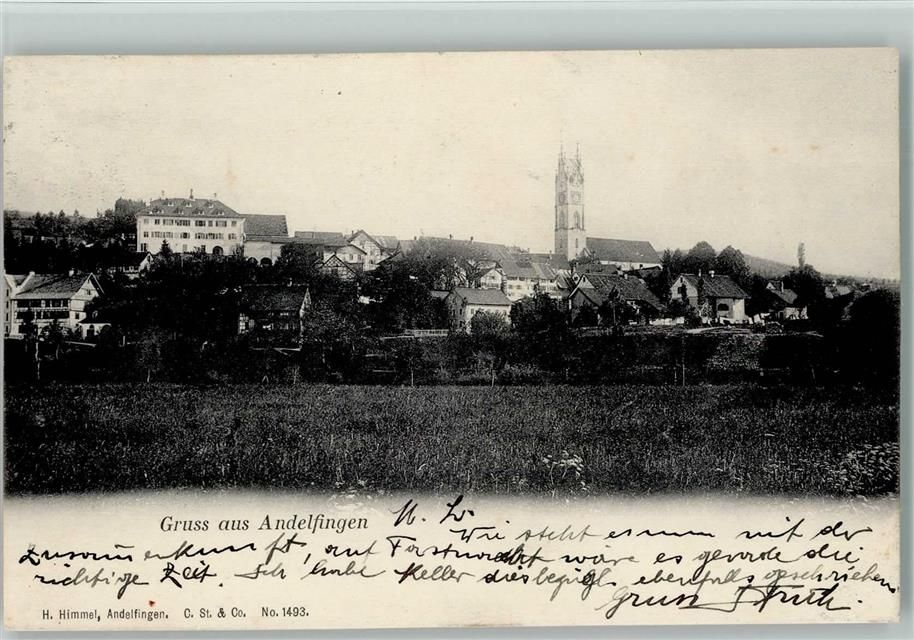 Gruss aus Andelfingen
M. L.
Wie steht es nun mit der
Zusammenkunft, auf wäre es gerade die
richtige Zeit. Ich habe Keller diesbezügl. ebenfalls geschrieben
Gruss
H. Himmel, Andelfingen. C. St. & Co. No. 1493.